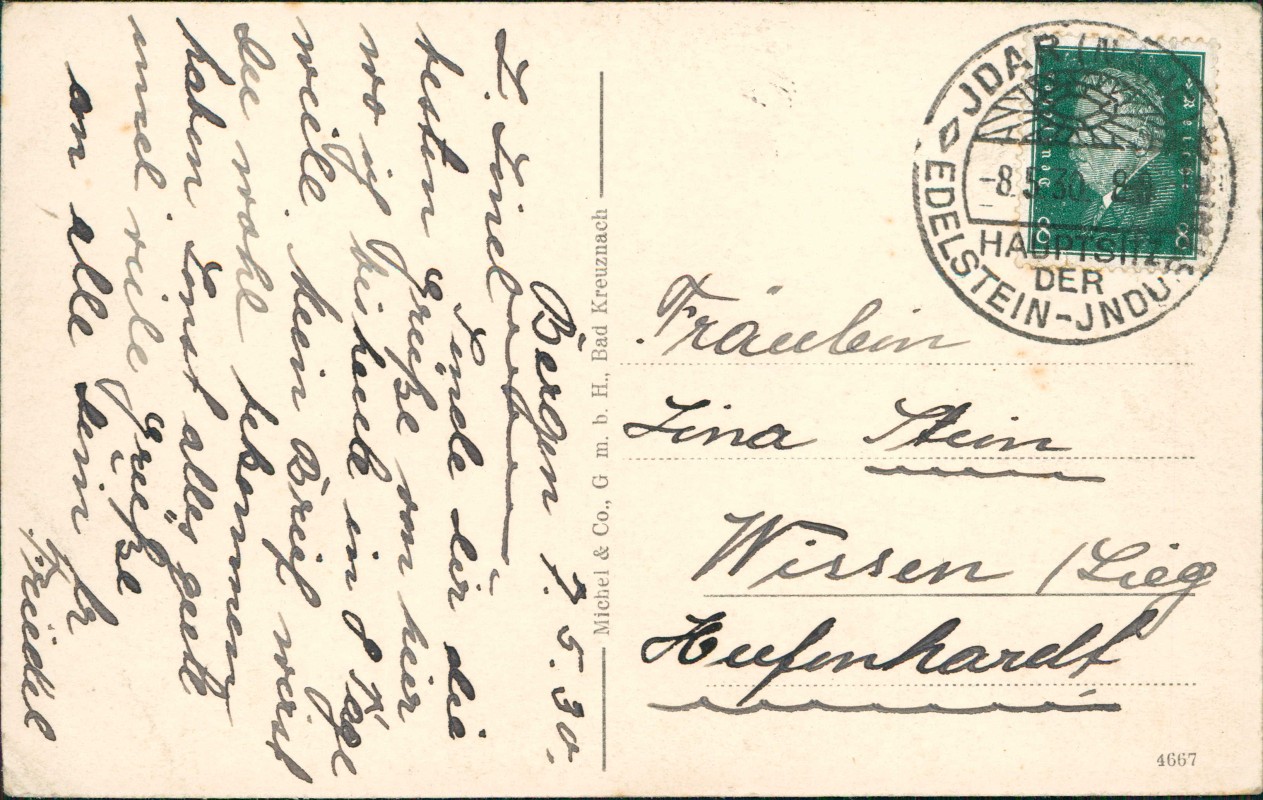 Bergen 7.5.30.
L. Linel
Sende dir die
besten Grüße von hier
wo ich bis heute in 8 Tage
weile kein Brief wirst
Du wohl bekommen
haben sonst alles gute
und viele Grüße
an alle Dein Fr.
Friedel
Michel & Co., G m. b. H., Bad Kreuznach
JDAR (N
-8.5.30. 8
HAUPTSITZ
DER
EDELSTEIN-JNDUS
Deutsches Reich
8 8
Fräulein
Lina Stein
Wissen /Sieg
Hufenhardt
4667